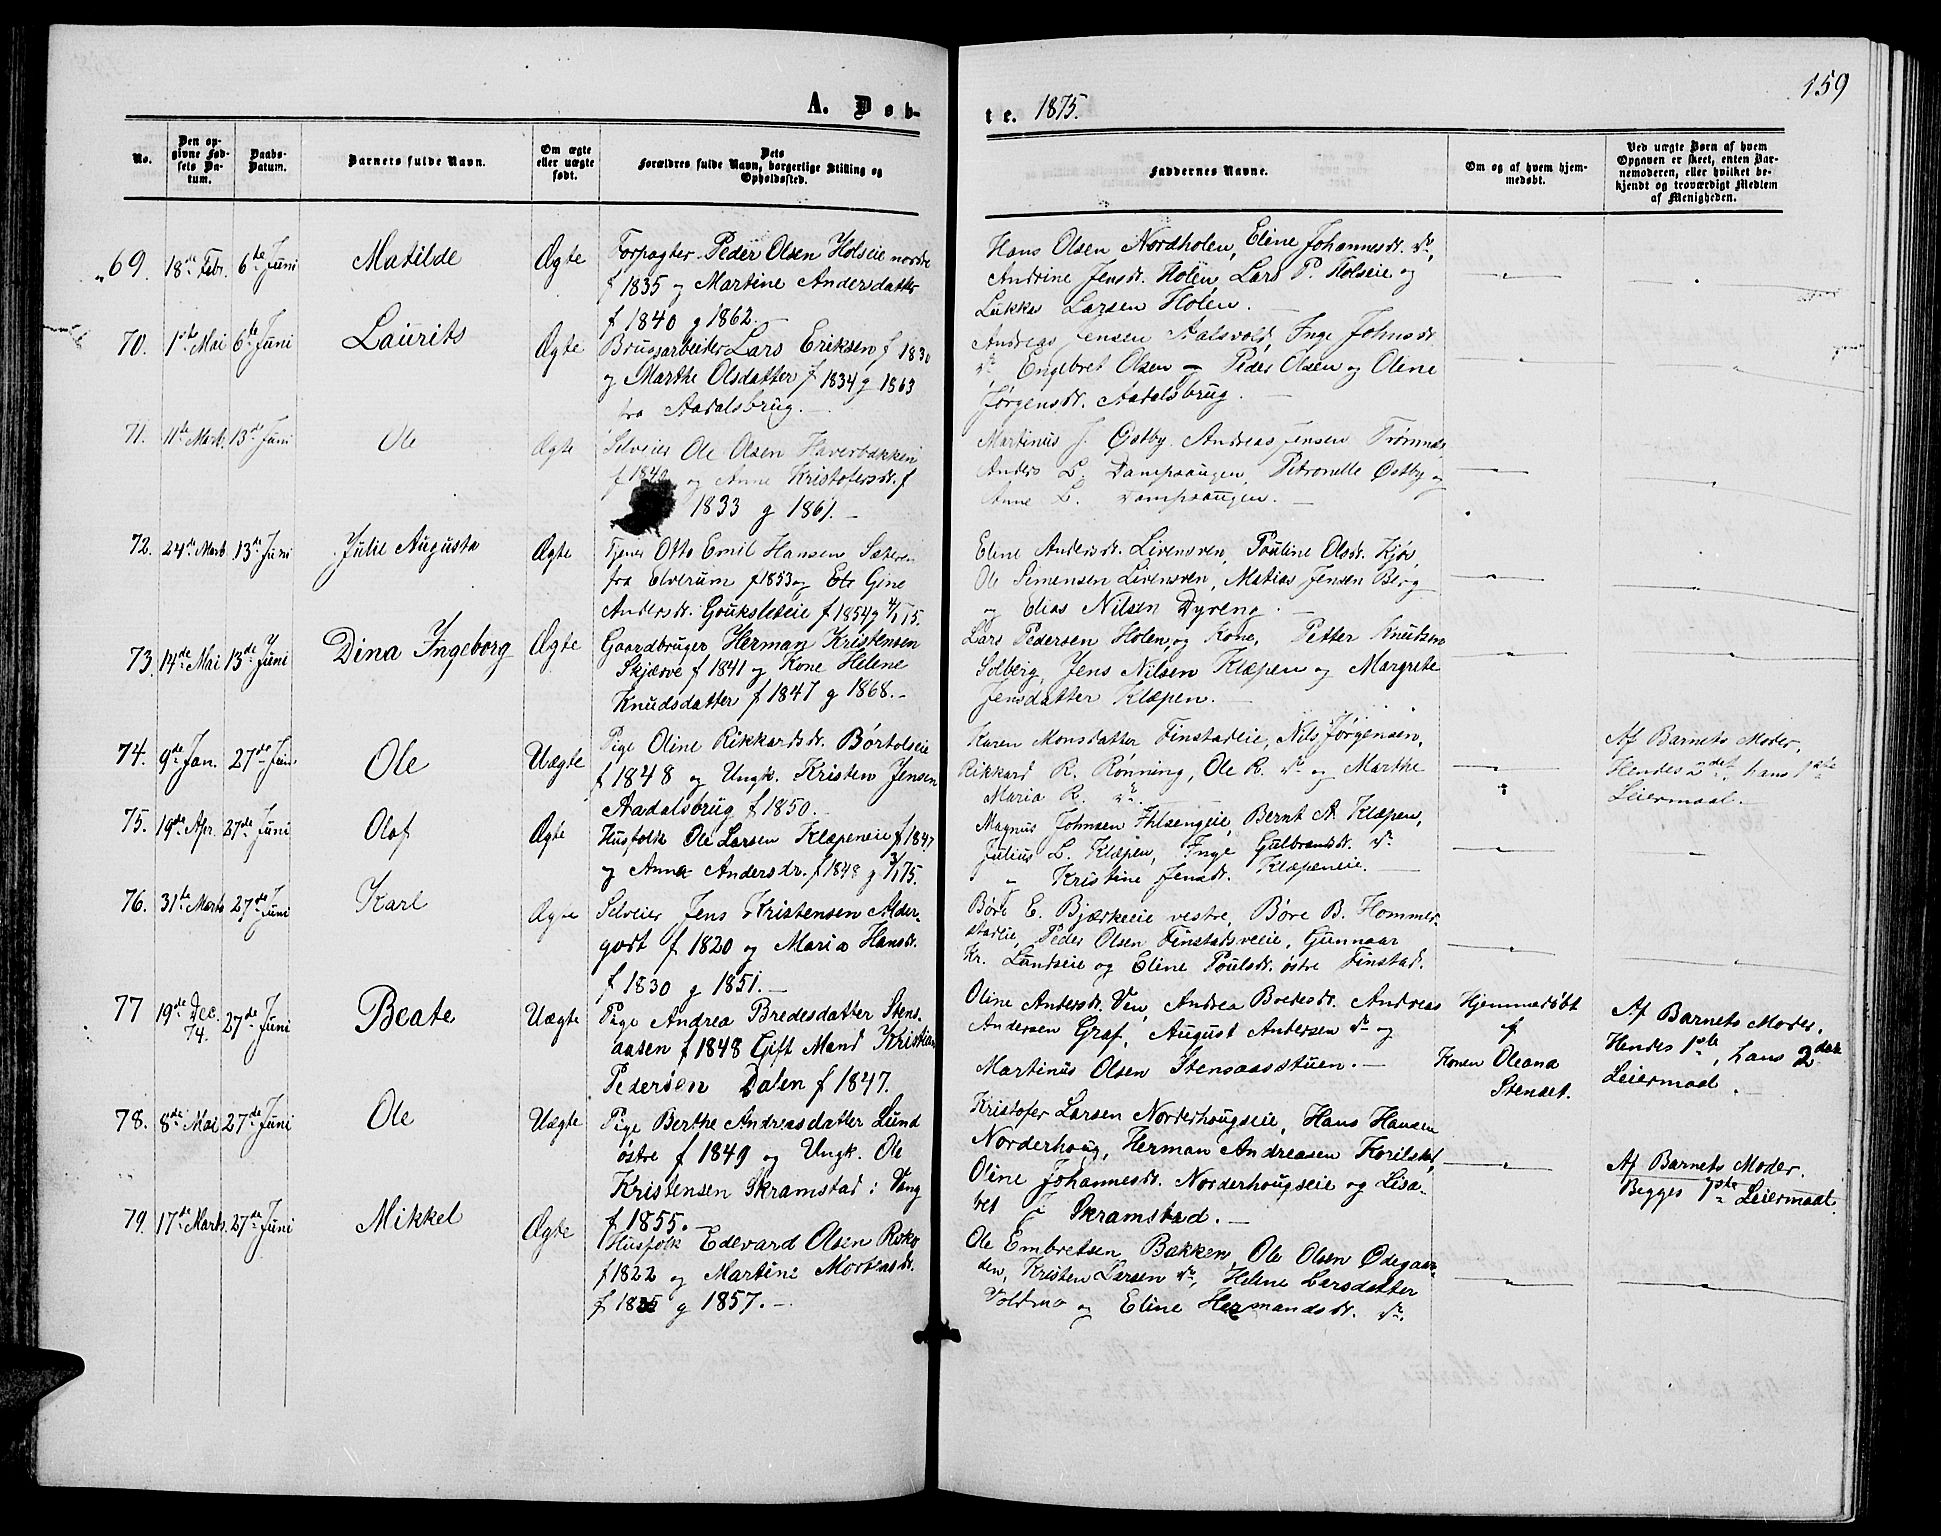 159
A. Døb-
te. 1875.
No.
Den op-
givne Fød-
sels Da-
tum.
Daabs-
Datum.
Barnets fulde Navn.
Om ægte
eller uægte
født.
Dets
Forældres fulde Navn, borgerlige Stilling og
Opholdssted.
Faddernes Navne.
Om og af hvem hjem-
medøbt.
Ved uægte Børn af hvem
Opgaven er skeet, enten Bar-
nemoderen, eller hvilket be-
kjendt og troværdigt Medlem
af Menigheden.
69. 18de Febr. 6te Juni Matilde Ægte Forpagter Peder Olsen Holseie nordre
f 1835 og Martine Andersdatter
f 1840 g 1862.
Hans Olsen Nordholen, Eline Johannesdr. do,
Andrine Jensdr. Holen, Lars P. Holseie og
Lukke Larsen Holen.
70. 1ste Mai 6te Juni Laurits Ægte Brugsarbeider Lars Eriksen f 1830
og Marthe Olsdatter f 1834 g 1863
fra Aadalsbrug.
Andreas Jensen Aalsvold, Inge Johnsdr.
do Engebret Olsen Peder Olsen og Olene
Jørgensdr. Aadalsbrug.
71. 11te Marts 13de Juni Ole Ægte Selveier Ole Olsen Haverbakken
f 1840 og Anne Kristofersdr. f
1833 g 1861.
Martinus J. Østby, Andreas Jensen
Anders L. Dampsaugen, Petronelle Østby og
Anne L. Dampsaugen.
72. 24de Marts 13de Juni Julie Augusta Ægte Tjener Otto Emil Hansen Sæteren
fra Elverum f 1853 og Gine
Andersdr. f 1854 g 75.
Eline Andersdr. Livensven, Pouline Olsdr. Kjøs,
Ole Simensen Livensven, Matias Jensen Berg
og Elias Nilsen Dyreng.
73. 14de Mai 13de Juni Dina Ingeborg Ægte Gaardbruger Herman Kristensen
Skjærve f 1841 og Kone Helene
Knudsdatter f 1847 g 1868.
Lars Pedersen Holen og Kone, Petter Knutsen
Solberg, Jens Nilsen Klæpen og Margrete
Jensdatter Klæpen.
74. 9de Jan. 27de Juni Ole Uægte Pige Oline Rikkardsdr. Børtolseie
f 1848 og Ungk. Kristen Jensen
Aadalsbrug f 1850.
Karen Monsdatter Finstadeie, Nils Jørgensen,
Rikkard R. Rønning, Ole R. do og Marthe
Maria R. do.
Af Barnets Moder.
Hendes 2det, hans 1ste
Leiermaal.
75. 19de Apr. 27de Juni Olaf Ægte Husfolk Ole Larsen Klæpeneie f 1847
og Anne Andersdr. f 1848 g 3/1 75.
Magnus Johnsen Ihlsengeie, Bernt A. Klæpen,
Julius L. Klæpen, Inge Gulbrandsdr. do
" Kristine Jensdr. Klæpeneie.
76. 31te Marts 27de Juni Karl Ægte Selveier Jens Kristensen Alder-
gort f 1820 og Maria Hansdr.
f 1830 g 1851.
Børe E. Bjærkeeie vestre, Børe B. Hommer-
stadeie, Peder Olsen Finstadsveie, Gunnaar
Kr. Lundseie og Eline Poulsdr. østre Finstad.
77 19de Dec. 74. 27de Juni Beate Uægte Pige Andrea Bredesdatter Stens-
aasen f 1848 Gift Mand Kristian
Pedersen Dalen f 1847.
Oline Andersdr. Ven, Andrea Bredesdr. Andreas
Andersen Graf, August Andersen do og
Martinus Olsen Stensaasstuen.
Hjemmedøbt
af
Konen Oleana
Stenset.
Af Barnets Moder.
Hendes 1ste, hans 2det
Leiermaal.
78. 8de Mai 27de Juni Ole Uægte Pige Berthe Andreasdatter Lund
østre f 1849 og Ungk. Ole
Kristensen Skramstad i Vang
f 1855.
Kristofer Larsen Norderhougseie, Hans Hansen
Norderhoug, Herman Andreasen Korilstad,
Oline Johannesdr. Norderhougseie og Lisa-
bet J. Skramstad.
Af Barnets Moder.
Begges 1ste Leiermaal.
79. 17de Marts 27de Juni Mikkel Ægte Husfolk Edevard Olsen Roko
f 1822 og Martine Mortensdr.
f 1835 g 1857.
Ole Embretsen Bakken, Ole Olsen Ødegaar-
den, Kristen Larsen do, Helene Larsdatter
Voldmo og Eline Hermandsdr. do.